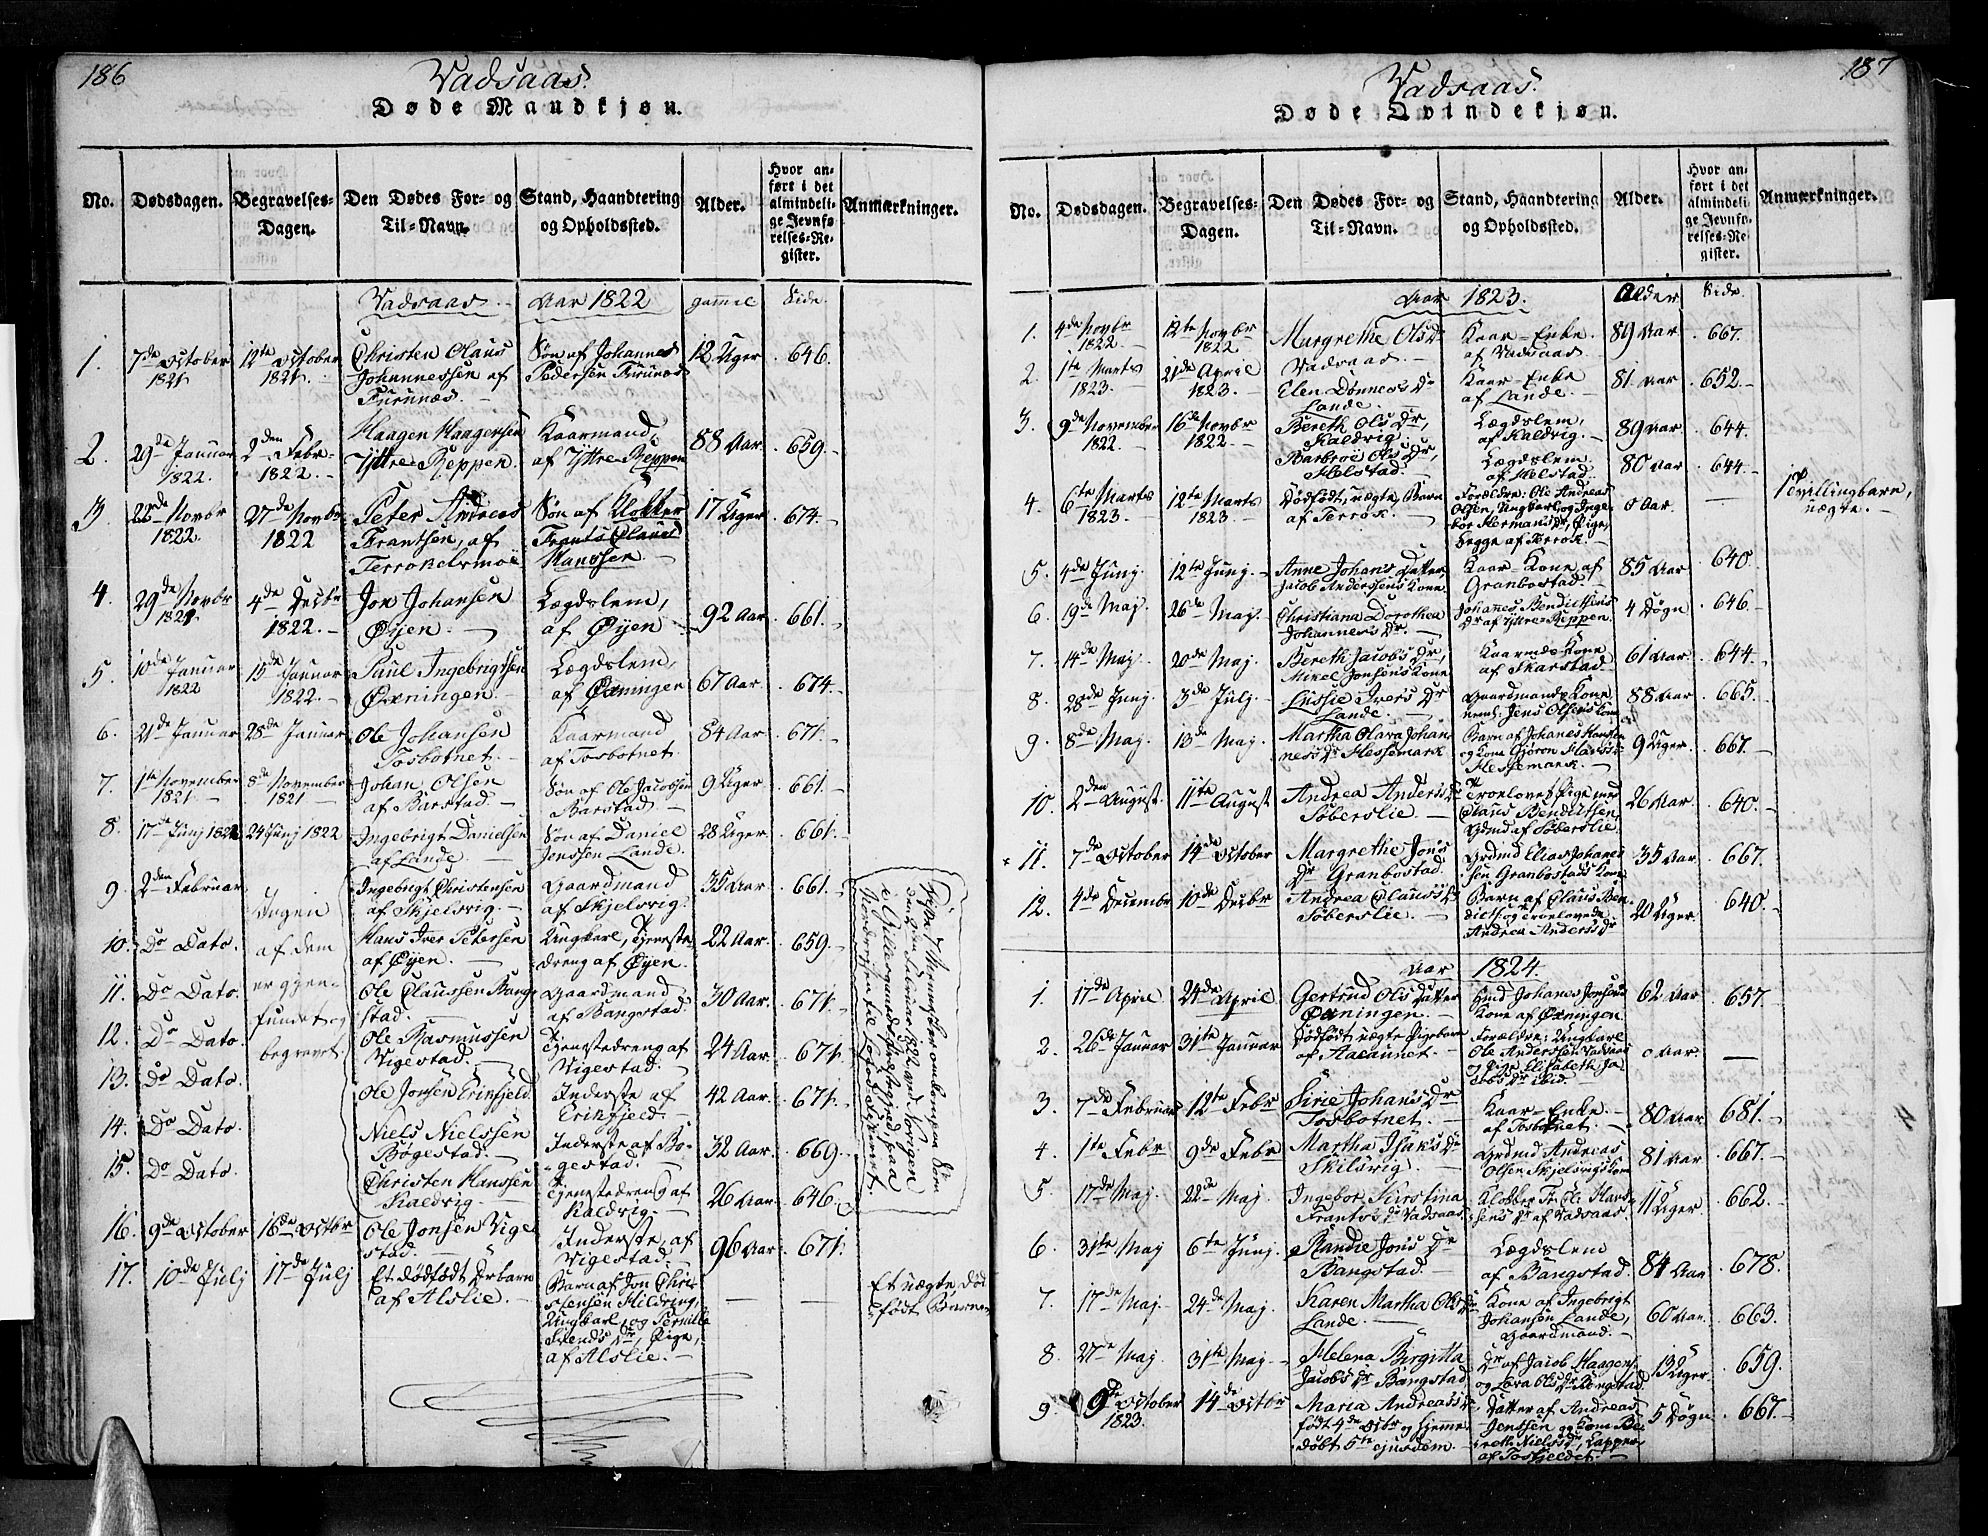 186
Vadsaas.
Døde Mandkjøn.
No. Dødsdagen. Begravelses-Dagen. Den Dødes For- og Til-Navn. Stand, Haandtering og Opholdssted. Alder. Hvor anført i det almindelige Jevnførelses-Register. Anmærkninger.
Vadsaas. Aar 1822 gammel Side.
1. 7de October 1821 12te October 1821. Christen Olaus Johannessen af Furunæs. Søn af Johannes Pedersen Furunæs 12 Uger 646.
2. 29de Januar 1822. 2den Febr. 1822. Haagen Haagensen Yttre Reppen. Kaarmand, af Yttre Reppen 88 Aar. 659.
3. 22de Novbr 1822. 27de Novbr 1822 Peter Andreas Frantsen, af Terrokelvmoe Søn af Klokker Frants Claus Hanssen. 17 Uger 674.
4. 29de Novbr 1821 4de Decbr 1822. Jon Johansen Øyen. Lægdslem, af Øyen 92 Aar. 661.
5. 10de Januar 1822 15de Januar 1822. Paul Ingebrigtsen Øxningen. Lægdslem, af Øxningen 67 Aar 674.
6. 21de Januar 28de Januar Ole Johansen Tosbotnet. Kaarmand af Tosbotnet 84 Aar. 671.
7. 1te November 1821. 8de November 1821 Johan Olsen af Barstad. Søn af Ole Jacobsen Barstad. 9 Uger 661.
8. 17de Junj 1822 24 Junj 1822 Ingebrigt Danielsen af Lande. Søn af Daniel Jenssen Lande. 28 Uger. 661.
9. 2den Februar Ingebrigt Christensen af Skjelsvig. Gaardmand af Skjelsvig. 35 Aar. 661.
Ingen af dem er gjenfundet og begravet.
10. Do Dato. Hans Iver Petersen af Øyen. Ungkarl, Tjenestedreng af Øyen. 22 Aar. 659.
11. Do Dato. Ole Claussen Bangstad. Gaardmand af Bangstad. 30 Aar. 671.
12. Do Dato. Ole Rasmussen Vigestad. Tjenestedreng af Vigestad. 24 Aar. 671.
13. Do Dato. Ole Jonsen Erikfjeld. Inderste af Erikfjeld. 42 Aar. 671.
14. Do Dato. Niels Nielssen Bøgestad. Inderste af Bøgestad. 32 Aar. 669.
15. Do Dato. Christen Hanssen Kaldvig. Tjenestedreng af Kaldvig. 26 Aar. 646.
16. 9de October 16de Octbr Ole Jonsen Vigestad. Inderste, af Vigestad. 96 Aar. 671.
17. 10de Julj 17de Julj Et dødfødt Drbarn af Alslie. Barn af Jon Christensen Hildring, Ungkarl, og Pernille Svends Dr, Pige, af Alslie. Et uægte, dødfødt Barn.
187
Vadsaas.
Døde Qvindekjøn.
No. Dødsdagen. Begravelses-Dagen. Den Dødes For- og Til-Navn. Stand, Haandtering og Opholdssted. Alder. Hvor anført i det almindelige Jevnførelses-Register. Anmærkninger.
Aar 1823. Alder Side.
1. 4de Novbr 1822. 12te Novbr 1822 Margrethe Ols Dr Vadsaas. Kaar-Enke af Vadsaas. 89 Aar 667.
2. 1te Marts 1823. 21de April 1823. Elen Dønnes Dr Lande. Kaar-Enke af Lande. 81 Aar. 652.
3. 9de November 1822. 16de Novbr 1822. Bereth Ols Dr, Kaldvig. Lægdslem, af Kaldvig. 89 Aar. 644.
Barbroe Ols Dr, Helstad. Lægdslem af Helstad 80 Aar 644.
4. 6te Marts 1823. 12te Marts 1823. Dødfødt, uægte, Barn af Terrok. Forældre: Ole Andreas Olsen, Ungkarl, og Ingebor Hermans Dr, Pige, begge af Terrok. 0 Aar. Tvillingbarn, uægte.
5. 4de Junj 12te Junj Anne Johans Datter, Jacob Anderssens Kone Kaar-Kone af Granbostad. 85 Aar 640
6. 19de Maj. 26de Maj. Christiana Dorothea Johannes Dr. Johannes Bendictsens Dr af Yttre Reppen. 4 Døgn 646.
7. 14de Maj. 20de Maj. Bereth Jacobs Dr, Mikel Jonsens Kone Kaarmds Kone af Skarstad. 61 Aar. 644.
8. 28de Junj 3de Julj. Lussie Ivers Dr Lande. Gaardmands Kone nml: Jens Olsens Kone 88 Aar. 665.
9. 8de Maj. 13de Maj. Martha Olava Johannes Dr Hessemark Barn af Johanes Hansen og Kone Gjøron Hans Dr Hessemark. 9 Uger. 667.
10. 2den August. 11te August Andrea Anders Dr Toberslie. Troelovet Pige med Claus Bendictsen, Grdmd af Toberslie. 26 Aar. 640.
11. 7de October 14de October Margrethe Jons Dr Granbostad. Grdmd Elias Johanessen Granbostads Kone 35 Aar. 667.
12. 4de Decembr 10de Decbr Andrea Claus Dr Toberslie. Barn af Claus Bendicts. og troelovede Andrea Anders Dr 20 Uger 640.
Aar 1824.
1. 17de April 24de April Gertrud Ols Datter Øxningen. Grmd Johanes Jonsens Kone af Øxningen. 62 Aar 657.
2. 26de Januar 31te Januar Dødfødt uægte Pigebarn af Aacunnet. Forældre: Ungkarl Ole Anderssen Vadsaas og Pige Elisabeth Jacobs Dr ibid. 0 Aar.
3. 7de Februar 12te Febr Sirie Johans Dr Tosbotnet. Kaar-Enke af Tosbotnet. 80 Aar 681.
4. 1te Febr 9de Febr Martha Isaks Dr Skilsvig. Grdmd Andreas Olsen Skjelsvigs Kone 81 Aar. 667.
5. 17de Maj. 22de Maj. Ingebor Kirstina Frants Dr Vadsaas. Klokker Fr. Ole Hanssens Dr af Vadsaas. 11 Uger. 662.
6. 31te Maj 6te Junj. Randie Jons Dr Bangstad. Lægdslem af Bangstad. 84 Aar 678.
7. 17de Maj 24de Maj. Karen Martha Ols Dr Lande. Kone af Ingebrigt Johansen Lande, Gaardmand. 60 Aar. 663.
8. 27de Maj. 31te Maj Helena Birgitta Jacobs Dr Bangstad Dr af Jacob Haagens. og Lova Ols Dr Bangstad. 13 Uger. 659.
9. 9de October 1823. 14de Octbr Maria Andreas Dr født 4de Octbr og hjemedøbt 5te ejusdem. Datter af Andreas Jenssen og Kone Bereth Niels Dr, Lapper, af Tosfjeldet. 5 Døgn 667.